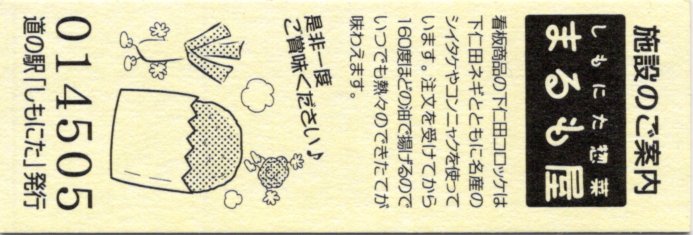 施設のご案内
しもにた惣菜
まるも屋
看板商品の下仁田コロッケは
下仁田ネギとともに名産の
シイタケやコンニャクを使って
います。注文を受けてから
160度ほどの油で揚げるので
いつでも熱々のできたてが
味わえます。
是非一度
ご賞味ください♪
014505
道の駅「しもにた」発行